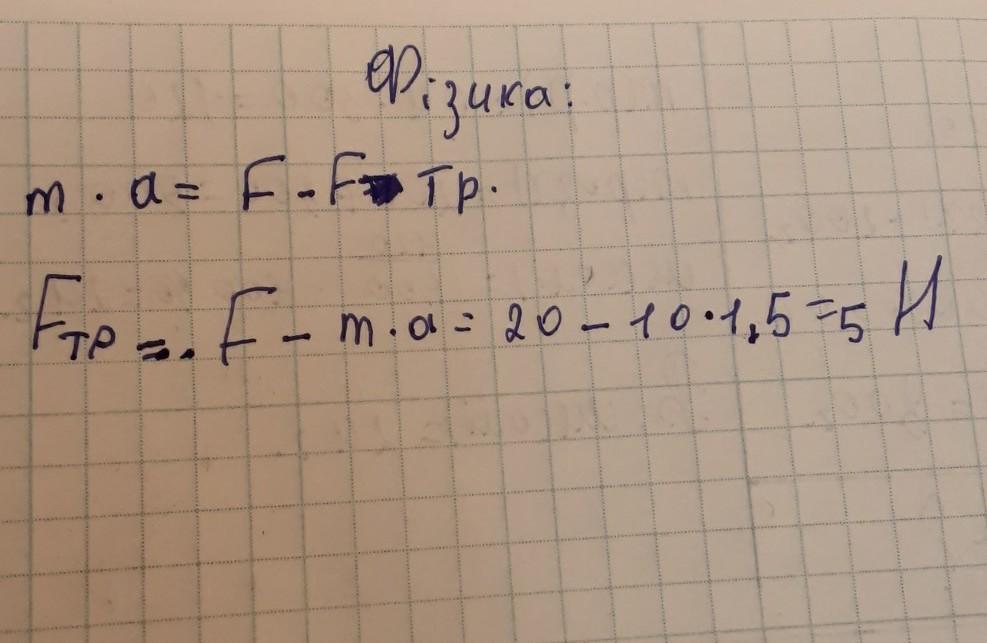 Фізика:
m · a = F - F Тр.
Fтр = . F - m · a = 20 - 10 · 1,5 = 5 Н